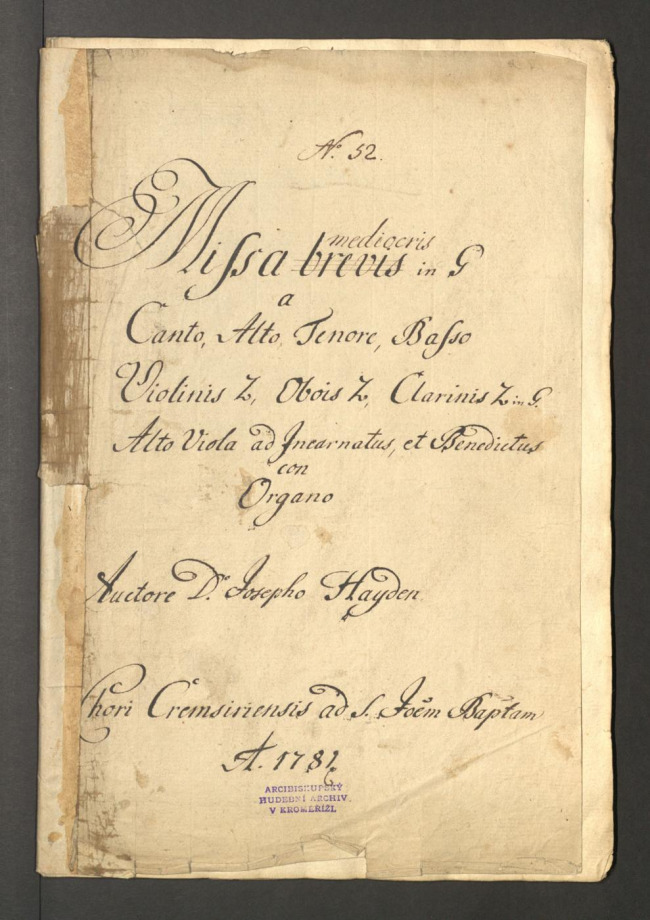 No. 52.
mediocris
Missa brevis in G
a
Canto, Alto, Tenore, Basso
Violinis 2, Obois 2, Clarinis 2 in G.
Alto Viola ad Incarnatus, et Benedictus
con
Organo
Auctore D. Josepho Hayden
Chori Cremsiriensis ad S. Joem Baptam
A. 1781
ARCIBISKUPSKÝ
HUDEBNÍ ARCHIV
V KROMĚŘÍŽI.